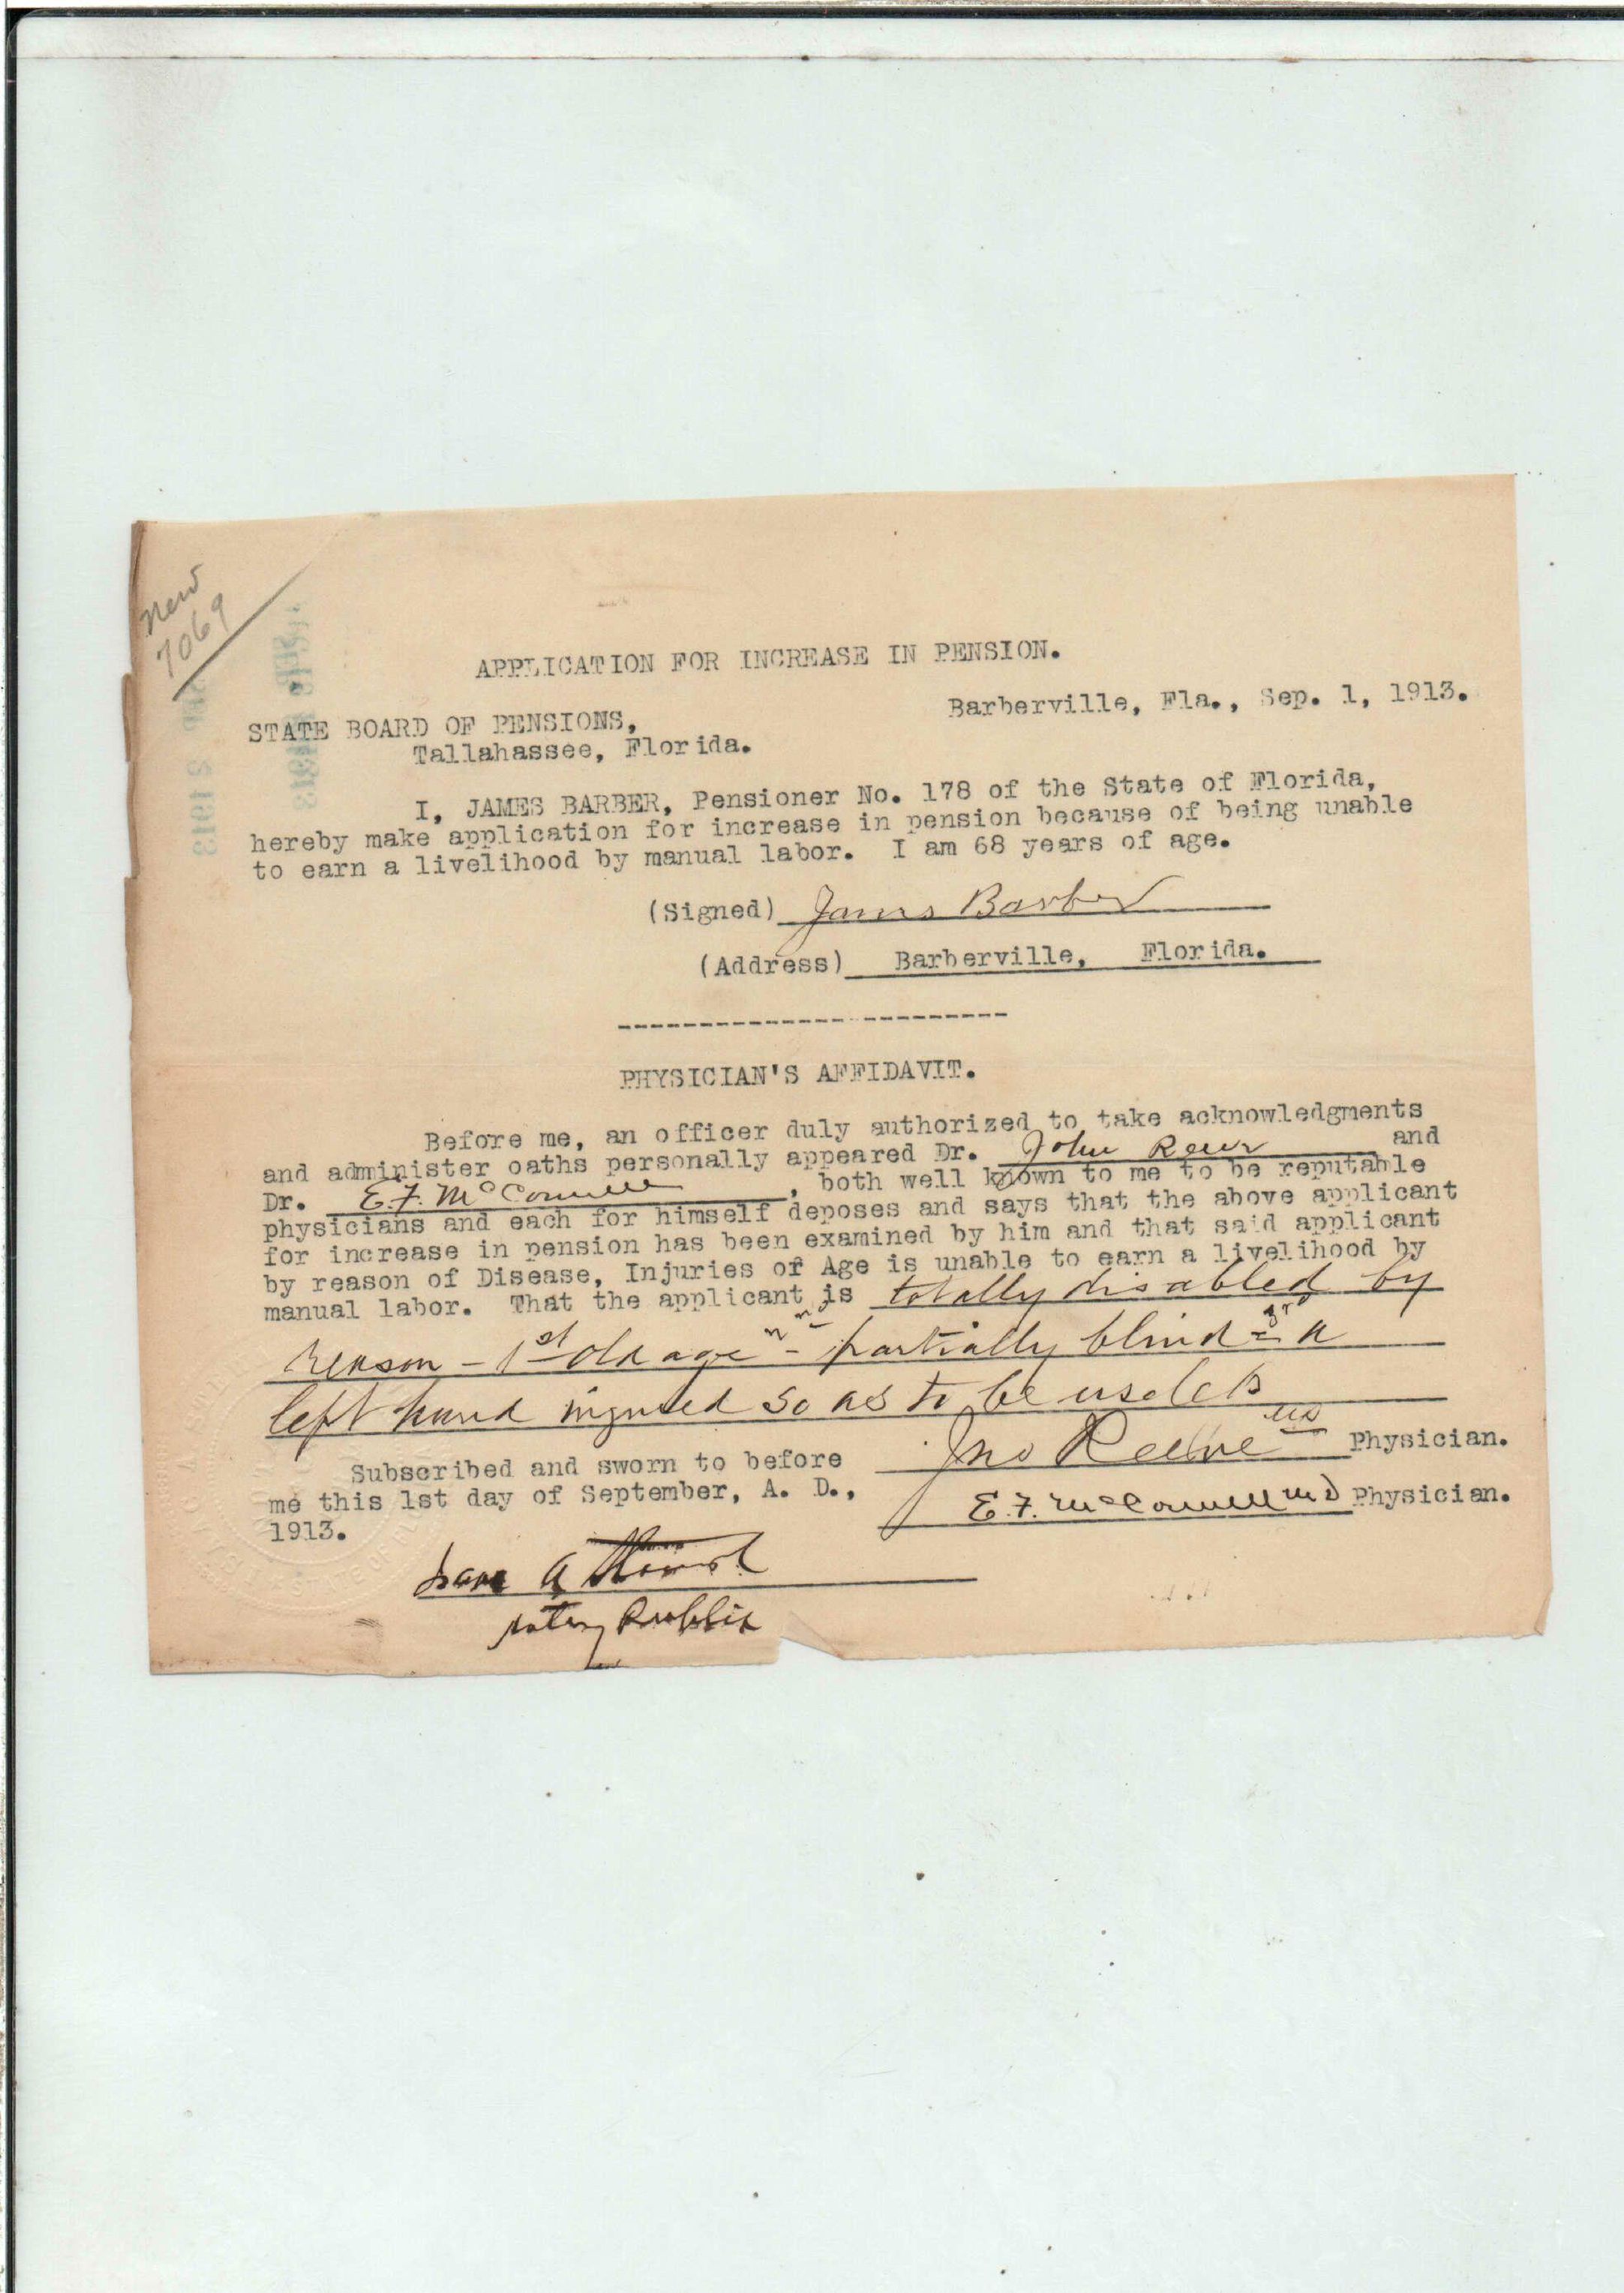 new
7069
APPLICATION FOR INCREASE IN PENSION.
Barberville, Fla., Sep. 1, 1913.
STATE BOARD OF PENSIONS,
Tallahassee, Florida.
I, JAMES BARBER, Pensioner No. 178 of the State of Florida,
hereby make application for increase in pension because of being unable
to earn a livelihood by manual labor. I am 68 years of age.
(Signed) James Barber
(Address) Barberville, Florida.
-------------------------
PHYSICIAN'S AFFIDAVIT.
Before me, an officer duly authorized to take acknowledgments
and administer oaths personally appeared Dr. John and
Dr. E.F. McConnell, both well known to me to be reputable
physicians and each for himself deposes and says that the above applicant
for increase in pension has been examined by him and that said applicant
by reason of Disease, Injuries or Age is unable to earn a livelihood by
manual labor. That the applicant is totally disabled by
reason - 1st old age - partially blind - a
left hand injured so as to be useless
Jno MD Physician.
Subscribed and sworn to before
me this 1st day of September, A. D.,
1913.
E.F. McConnell MD Physician.
Notary Public